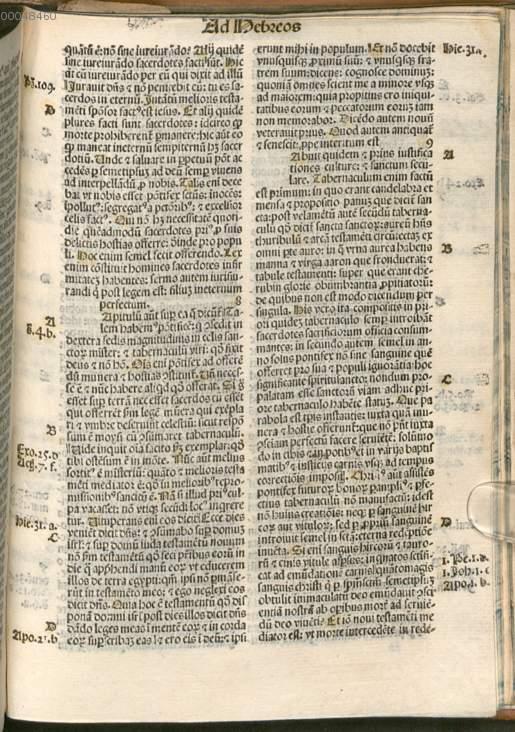 00048460
Ad Hebreos
quãtũ ẽ: nõ sine iureiurãdo. Alij quidẽ
sine iureiurãdo sacerdotes facti sũt. Hic
aũt cũ iureiurãdo per eũ qui dixit ad illũ
Ps.109.
Jurauit dñs z nõ penitebit eũ: tu es sa-
cerdos in eternũ. Jntãtũ melioris testa-
D
mẽti spõsor factus est iesus. Et alij quidẽ
plures facti sunt sacerdotes: idcirco
morte prohiberent permanere: hic aũt eo
maneat ineternũ sempiternũ hz sacer
dotiũ. Unde z saluare in ppetuũ põt ac
cedẽs p semetipsuz ad deũ semp viuens
ad interpellãdũ p nobis. Talis eni dece
bat vt nobis esset põtifex scũs: inocẽs:
z excelsior
celis factus. Qui nõ hz necessitatẽ quoti-
die quẽadmodũ sacerdotes p suis
delictis hostias offerre: deinde pro popu
li. Hoc enim fecit semel offerendo. Lex
enim cõstituit homines sacerdotes infir
mitatez habentes: sermo autem iuriiu-
randi q post legem est: filiuz ineternum
perfectum. 8
A
Apitulũ aũt sup ea q dicunt Ta
lem habemus põtificẽ: q cõsedit in
ħ.4.b.
dextera sedis magnitudinis in celis san-
ctor mister: z tabernaculi viri: qd fixit
deus z nõ hõ. Ois eni põtifex ad offerẽ
dũ munera z hostias cõstituit. Uñ neces-
se ẽ z hũc habere aliqd qd offerat. Si g
esset sup terrã nec esset sacerdos cũ essẽt
qui offerrẽt sm legẽ munera qui exẽpla
ri z vmbre deseruiũt celestiũ: sicut respõ
B
sum ẽ moysi cũ cõsumaret tabernaculũ.
Exo.25.d
Uide inquit oia facito sm exemplar: qd
Act.7.f.
tibi ostẽsum ẽ in mõte. Nũc aũt melius
sortitus ẽ misteriũ: quãto z melioris testa
mẽti mediator ẽ: qd in melioribus repro-
missionibus sancitũ ẽ. Nã si illud prius cul-
pa vacasset: nõ vtiqz secũdi locus inqrere
Hie.31.a.
tur. Uituperans eni eos dicit: Ecce dies
C
venient dicit dñs: z cõsumabo sup domuz
israel: z sup domũ iuda testamẽtũ nouum
nõ sm testamẽtũ qd feci prĩbus eorũ in
die q apphendi manũ eorz vt educerem
illos de terra egypti: qm ipsi nõ pmãse-
rũt in testamẽto meo: z ego neglexi eos
dicit dñs. Quia hoc ẽ testamentũ qd dis
ponã domui isrl post dies illos dicit dñs
D
dãdo leges meas ĩ mentẽ eorz z in corda
Apo.21.b
eorz supscribaz eas: z ero eis ĩ deũ: z ipsi
erunt mihi in populum. Et nõ docebit
Hie.31.
vnusquisqz proximũ suũ: z vnusqsqz fra
trem suum: dicens: cognosce dominuz:
quoniã omnes scient me a minore vsqz
ad maiorem: quia propitius ero iniqui-
tatibus eorum z peccatorum eorũ iam
non memorabor. Dicẽdo autem nouũ
veterauit prius. Quod autem antiquat
z senescit: ppe interitum est. 9
A
Abuit quidem z prius iustifica
tiones culture: z sanctum secu-
lare. Tabernaculum enim factum
est primum: in quo erant candelabra et
mensa z propositio panuz que dicit san
cta: post velamẽtũ autẽ secũdũ taberna-
culũ qd dicit sancta sanctorz: aureũ hñs
thuribulũ z arcã testamẽti circũtectaz ex
omni pte auro: in q vrna aurea habens
B
manna z virga aaron que fronduerat: z
tabule testamenti: super que erant che-
rubin glorie obumbrantia ppitiatoriũ:
de quibus non est modo dicendum per
singula. His vero ita compositis in pri-
ori quidez tabernaculo semp introibãt
sacerdotes sacrificiorum officia consum-
mantes: in secundo autem semel in an-
no solus pontifex nõ sine sanguine quẽ
offerret pro sua z populi ignorãtia: hoc
significante spiritusancto: nondum pro-
C
palatam esse sanctorũ viam adhuc pri-
ore tabernaculo habẽte statuz. Que pa
rabola est tpis instantis: iuxta quã mu-
nera z hostie offerunt: que nõ pñt iuxta
cõsciam perfectũ facere seruiẽtẽ: solũmõ
do in cibis z in potibus: et in varijs baptis
matibus z iusticijs carnis vsqz ad tempus
correctiõis impositis. Christus aũt assistẽs
pontifex futurorz bonorz p amplius z pfe-
ctius tabernaculũ nõ manufactũ: idest
nõ huius creatiõis: neqz p sanguinẽ hir
D
corz aut vitulorz: sed p ppriũ sanguinẽ
introiuit semel in scã: eterna redẽptio-
inuẽta. Si eni sanguis hircorũ z tauro-
rũ z cinis vitule aspsus: inqnatos sctifi-
1.Pe.1.d.
cat ad emũdationẽ carnis: quãtomagis
1.Joh.1.c
sanguis christi q p spmsctm semetipsuz
Apo.1.b.
obtulit immaculatũ deo emũdauit cõsci
entiã nostrã ab opibus mortis ad seruiẽ-
dũ deo viuẽti. Et iõ noui testamẽti me
diator est: vt morte intercedẽte in rede-